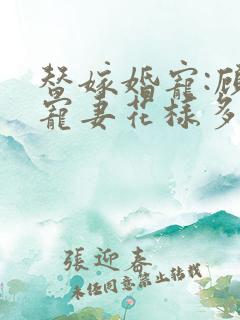 替嫁婚寵:顾
寵妻花樣多
張迎春
未任同意禁止转载